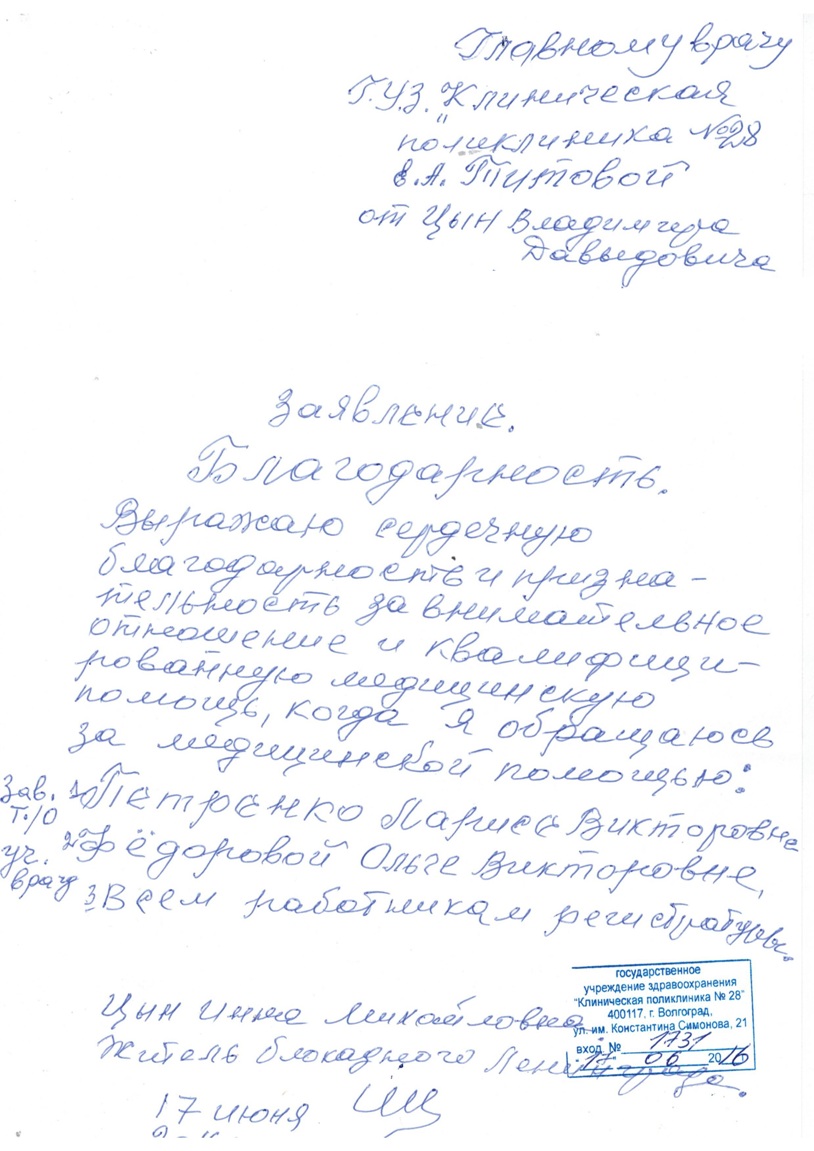 Главному врачу
Г.У.З. "Клиническая
поликлиника №28"
Е.А. Титовой
от Цын Владимира
Давыдовича
Заявление.
Благодарность.
Выражаю сердечную
благодарность и призна-
тельность за внимательное
отношение и квалифици-
рованную медицинскую
помощь, когда я обращаюсь
за медицинской помощью:
Зав. Т./О 1) Петренко Ларисе Викторовне
уч. врачу 2) Фёдоровой Ольге Викторовне,
3) Всем работникам регистратуры.
государственное
учреждение здравоохранения
"Клиническая поликлиника № 28"
400117, г. Волгоград,
ул. им. Константина Симонова, 21
вход. № 1731
17. 06 2016
Цын Инна Михайловна
Житель блокадного Ленинграда.
17 июня